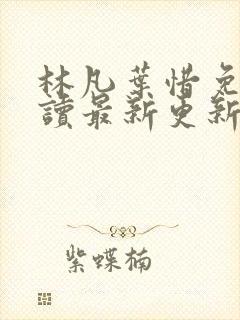 林凡葉惜免
讀最新更新
紫蝶楠